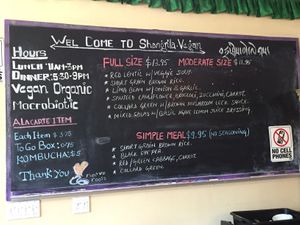 WEL COME TO Shangrila-Vegan
Hours
LUNCH 11AM-3PM
DINNER: 5:30-9PM
Vegan Organic
Macrobiotic
ALACARTE ITEM
Each Item $3.75
To Go Box: 0.75
KOMBUCHA: $5
Thank You
FULL SIZE $13.95 MODERATE SIZE $11.95
RED LENTIL W/ VEGGIE SOUP.
SHORT GRAIN BROWN RICE.
LIMA BEAN W/ ONION & GARLIC.
CAULIFLOWER, BROCCOLI, ZUCCHINI, CARROT.
COLLARD GREEN W/ BROWN MUSHROOM SAUCE.
MIXED SALAD W/ BASIL LEMON JUICE DRESSING.
SIMPLE MEAL $9.95 (NO SEASONING)
SHORT GRAIN BROWN RICE.
BLACK
RED/GREEN CABBAGE, CARROT.
COLLARD GREENS
NO CELL
PHONES